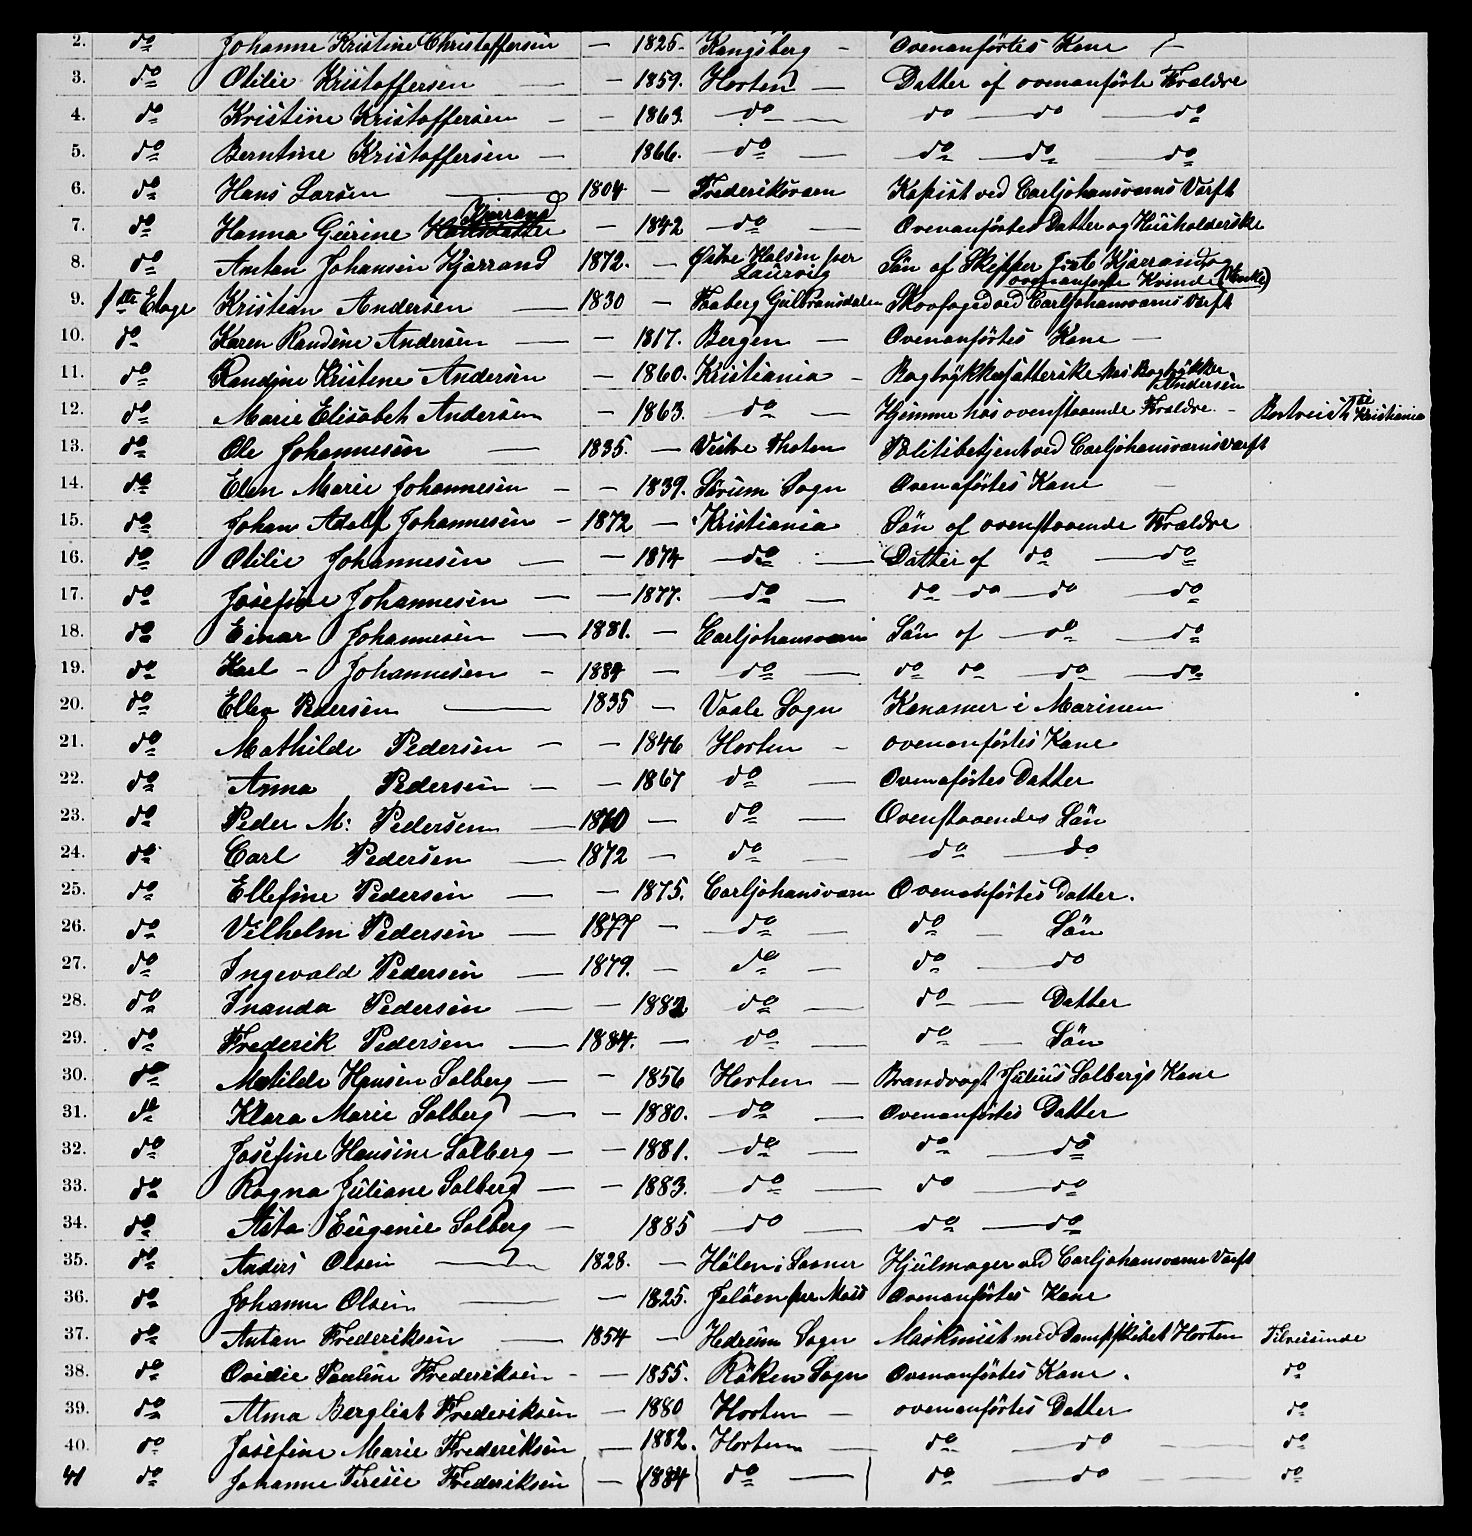 2. do Johanne Kristine Christoffersen — 1825. Kongsberg - Ovenanförtes Kone
3. do Otilie Kristoffersen — 1859. Horten — Datter af ovenanförte Forældre
4. do Kristine Kristoffersen - — 1863. do — do — do — do
5. do Berntine Kristoffersen — 1866. do — do — do — do
6. do Hans Larsen — 1804 — Frederiksværn Kopist ved Carljohansværns Værft
Kjørrand
7. do Hanna Gurine Hansdatter — 1842 do — Ovenanförtes Datter og Husholderske
8. do Anton Johansen Kjørrand 1872. — Östre Halsen per Laurvig Sön af Skipper Kjørrand og ovenanförte Kvinde (Enke)
9. 1ste Etage Kristian Andersen — 1830 — Faaberg Gulbransdalen Skovfoged ved Carljohansværns Værft
10. do Karen Randine Andersen — — 1817. Bergen — Ovenanförtes Kone —
11. do Randine Kristene Andersen — 1860. Kristiania - Bogtrykkersætterske hos Bogtrykker Andersen
12. do Marie Elisabeth Andersen — 1863. do — Hjemme hos ovenstaaende Forældre - Bortreist til Kristiania
13. do Ole Johannesen — 1835. — Vestre Thoten Politibetjent ved Carljohansværns Værft
14. do Elen Marie Johannesen - — 1839. Sörum Sogn Ovenaförtes Kone —
15. do Johan Adolf Johannesen - 1872 — Kristiania Sön af ovenstaaende Forældre
16. do Otilie Johannesen — — 1874 do — Datter af do — do
17. do Josefine Johannesen — — 1877. do — do do — do — do
18. do Einar Johannesen — 1881. — Carljohansværn Sön af — do — do
19. do Karl - Johannesen - 1884 — do — do do — do — do
20. do Ellev Pedersen — 1835 — Vaale Sogn Kanoneer i Marinen
21. do Mathilde Pedersen — - 1846 Horten - ovenanförtes Kone
22. do Anna Pedersen — - 1867 do — Ovenaförtes Datter
23. do Peder M: Pedersen — 1870 — do — Ovenstaaendes Sön
24. do Carl Pedersen — 1872 — do — do — do
25. do Ellefine Pedersen — - 1875. Carljohansværn Ovenanförtes Datter.
26. do Vilhelm Pedersen — 1877 - do — do — Sön
27. do Ingevald Pedersen — 1879. — do — do — do
28. do Inanda Pedersen — — 1882 do — do — Datter
29. do Frederik Pedersen — 1884. — do — do — Sön
30. do Matilde Hansen Solberg — - 1856 Horten — Brandvagt Julius Solbergs Kone
31. do Klara Marie Solberg — - 1880. do — Ovenanförtes Datter
32. do Josefine Hansine Solberg — - 1881. do — do — do
33. do Ragna Juliane Solberg — - 1883. do — do — do
34. do Asta Eugenie Solberg — 1885 do — do — do
35. do Anders Olsen — 1828. — Hölen i Saaner Hjulmager ved Carljohansværns Værft
36. do Johanne Olsen — - 1825. Jelöen per Moss Ovenanförtes Kone
37. do Anton Frederiksen — 1854 — Hedrum Sogn Maskinist med Dampskibet Horten Tilreisende
38. do Ovidie Pauline Frederiksen - — 1855. Röken Sogn Ovenanförtes Kone. do
39. do Alma Bergliot Frederiksen — 1880 Horten — ovenanförtes Datter do
40. do Josefine Marie Frederiksen — 1882. Horten — do — do — do
41 do Johanne Terese Frederiksen — 1884 do — do — do — do